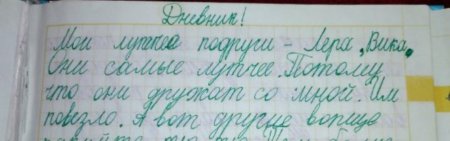 Дневник!
Мои лутчее подруги - Лера, Вика,
Они самые лутчее. Потому
что они дружат со мной. Им
повезло. А вот другие вопще